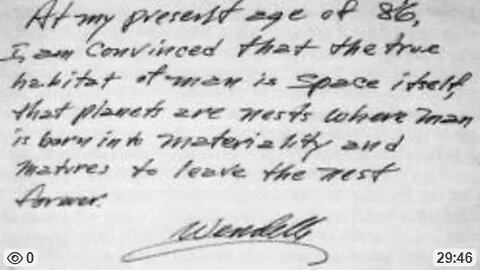 At my present age of 86,
I am convinced that the true
habitat of man is space itself,
that planets are nests where man
is born into materiality and
matures to leave the nest
forever.
Wendells
0
29:46